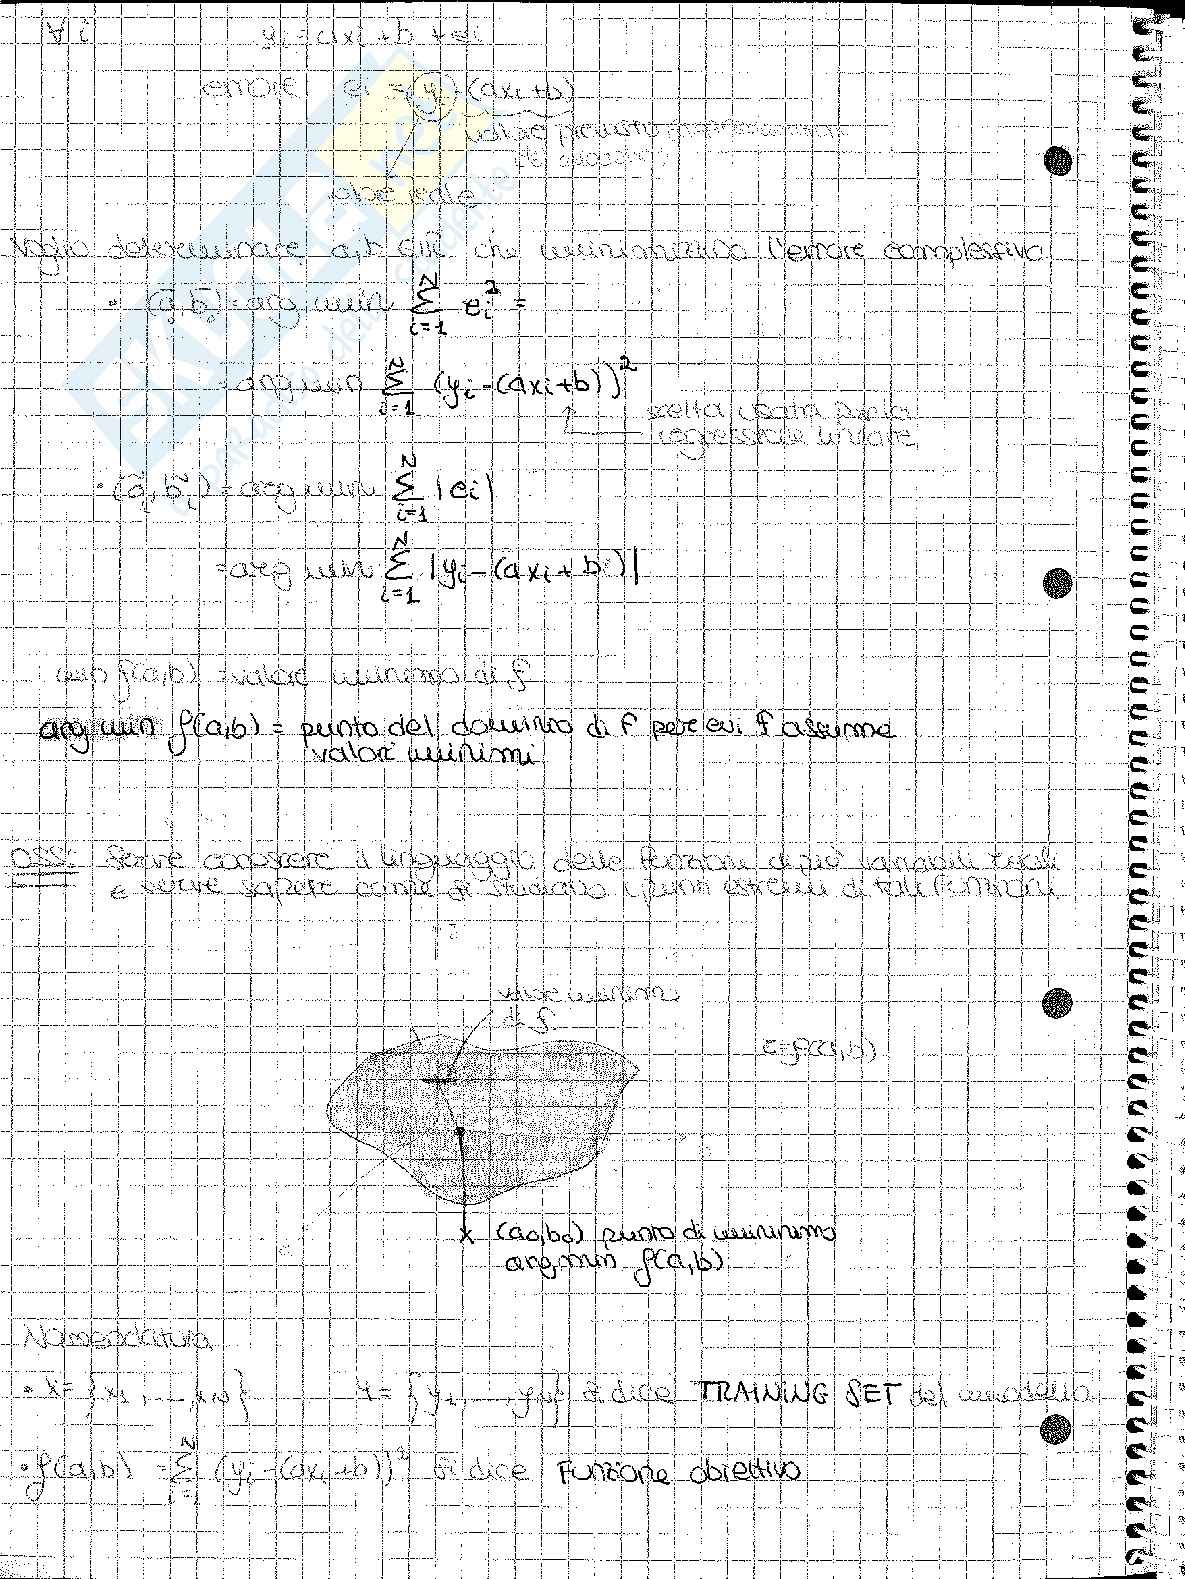 ∀ i y_i = ax_i + b + e_i
errore e_i = (y_i) - (ax_i + b)
valore previsto
valore reale
Voglio determinare a, b ∈ ℝ che minimizzino l'errore complessivo
• (a, b) = arg min Σ_{i=1}^{N} e_i^2 =
= arg min Σ_{i=1}^{N} (y_i - (ax_i + b))^2
scelta usata per la
regressione lineare
• (a, b) = arg min Σ_{i=1}^{N} |e_i|
= arg min Σ_{i=1}^{N} |y_i - (ax_i + b)|
min f(a,b) = valore minimo di f
arg min f(a,b) = punto del dominio di f per cui f assume
valori minimi
OSS: Serve conoscere il linguaggio delle funzioni di più variabili reali
e serve sapere come si studiano i punti estremi di tali funzioni
valore minimo
di f
z = f(a,b)
x (a_0, b_0) punto di minimo
arg min f(a,b)
Nomenclatura
• X = {x_1, ..., x_N} Y = {y_1, ..., y_N} si dice TRAINING SET del modello
• f(a,b) = Σ_{i=1}^{N} (y_i - (ax_i + b))^2 si dice Funzione obiettivo